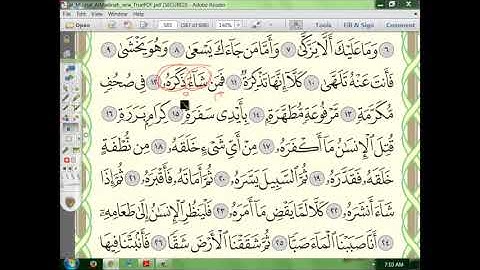 (SECURED) - Adobe Reader
585 140% Tools Fill & Sign Comment
٦ وَمَا عَلَيْكَ أَلَّا يَزَّكَّىٰ ٧ وَأَمَّا مَن جَآءَكَ يَسْعَىٰ ٨ وَهُوَ يَخْشَىٰ ٩
فَأَنتَ عَنْهُ تَلَهَّىٰ ١٠ كَلَّآ إِنَّهَا تَذْكِرَةٌ ١١ فَمَن شَآءَ ذَكَرَهُۥ ١٢ فِى صُحُفٍ
مُّكَرَّمَةٍ ١٣ مَّرْفُوعَةٍ مُّطَهَّرَةٍۭ ١٤ بِأَيْدِى سَفَرَةٍ ١٥ كِرَامٍۭ بَرَرَةٍ ١٦
قُتِلَ ٱلْإِنسَٰنُ مَآ أَكْفَرَهُۥ ١٧ مِنْ أَىِّ شَىْءٍ خَلَقَهُۥ ١٨ مِن نُّطْفَةٍ
خَلَقَهُۥ فَقَدَّرَهُۥ ١٩ ثُمَّ ٱلسَّبِيلَ يَسَّرَهُۥ ٢٠ ثُمَّ أَمَاتَهُۥ فَأَقْبَرَهُۥ ٢١ ثُمَّ إِذَا
شَآءَ أَنشَرَهُۥ ٢٢ كَلَّا لَمَّا يَقْضِ مَآ أَمَرَهُۥ ٢٣ فَلْيَنظُرِ ٱلْإِنسَٰنُ إِلَىٰ طَعَامِهِۦٓ
٢٤ أَنَّا صَبَبْنَا ٱلْمَآءَ صَبًّا ٢٥ ثُمَّ شَقَقْنَا ٱلْأَرْضَ شَقًّا ٢٦ فَأَنۢبَتْنَا فِيهَا
7:10 AM